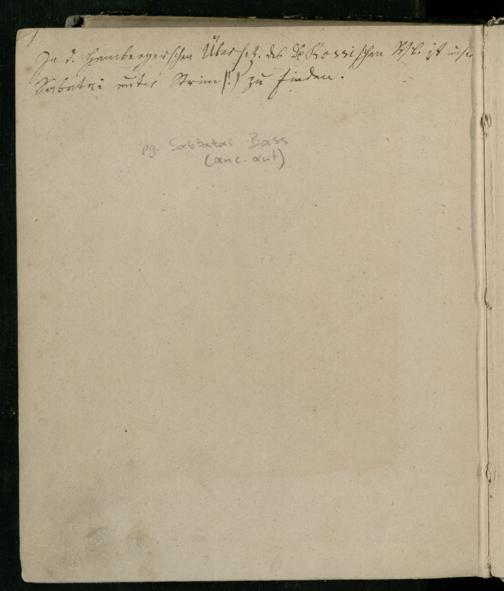 In d. Hambergerschen Übersetz. des De Rossischen Wb. ist unser
Sabatai unter Strim(!) zu finden.
pg. Sabbatai Bass
(anc. aut)